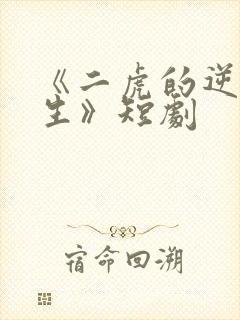 《二虎的逆
生》短劇
宿命回溯